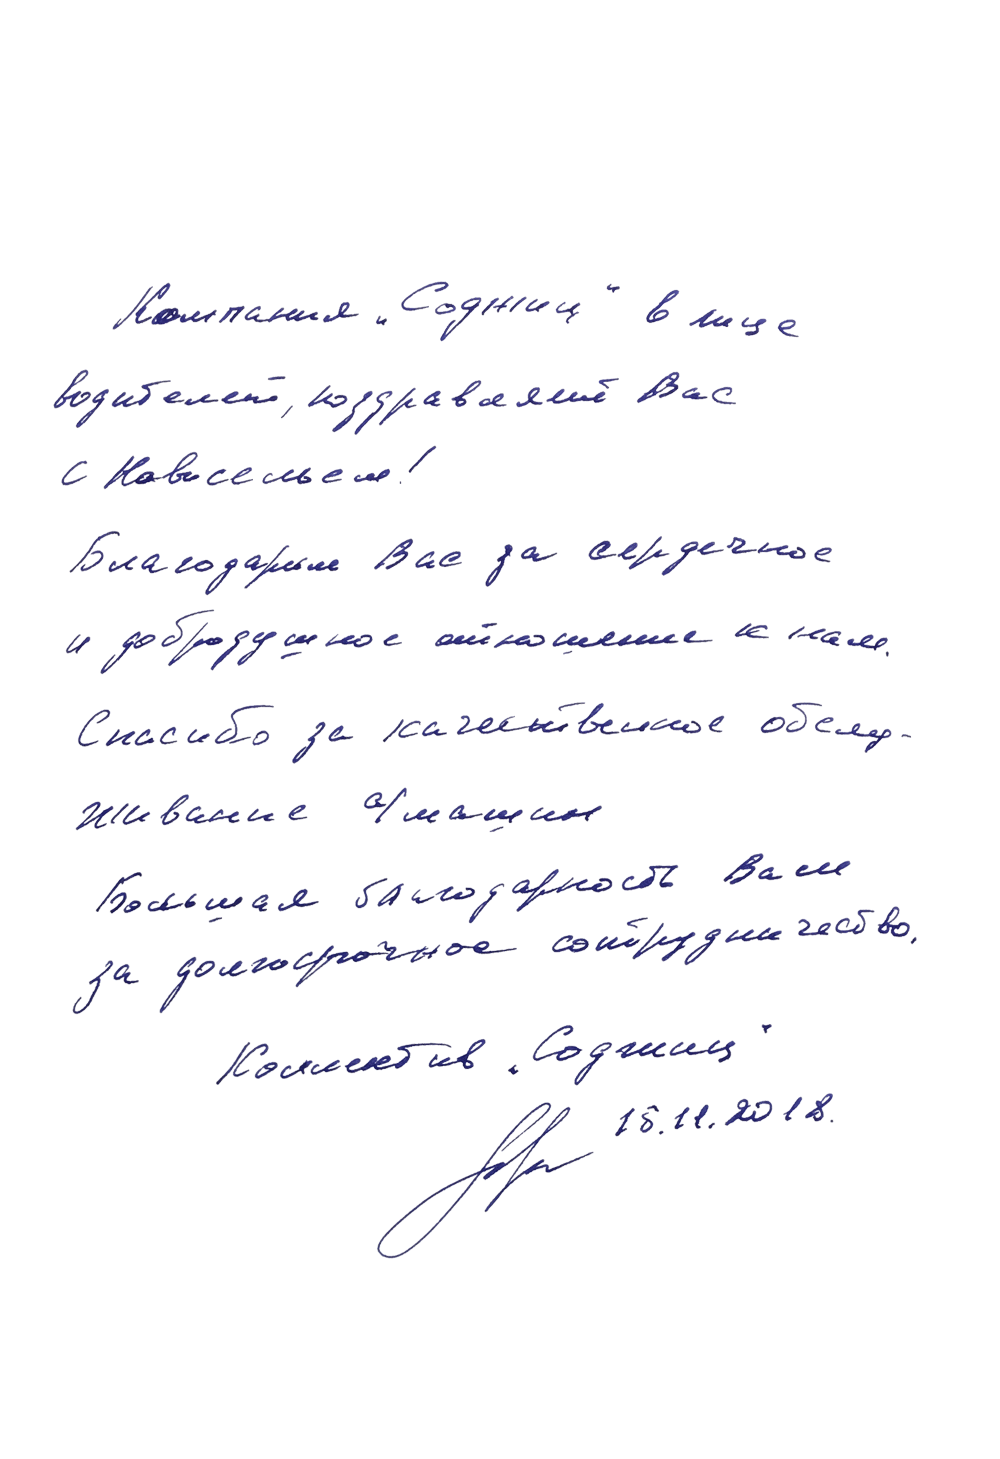 Компания „Соджиц" в лице
водителей, поздравляет Вас
с Новосельем!
Благодарим Вас за сердечное
и добродушное отношение к нам.
Спасибо за качественное обслу-
живание а/машин
Большая благодарность Вам
за долгосрочное сотрудничество.
Коллектив „Соджиц"
15.11.2018.